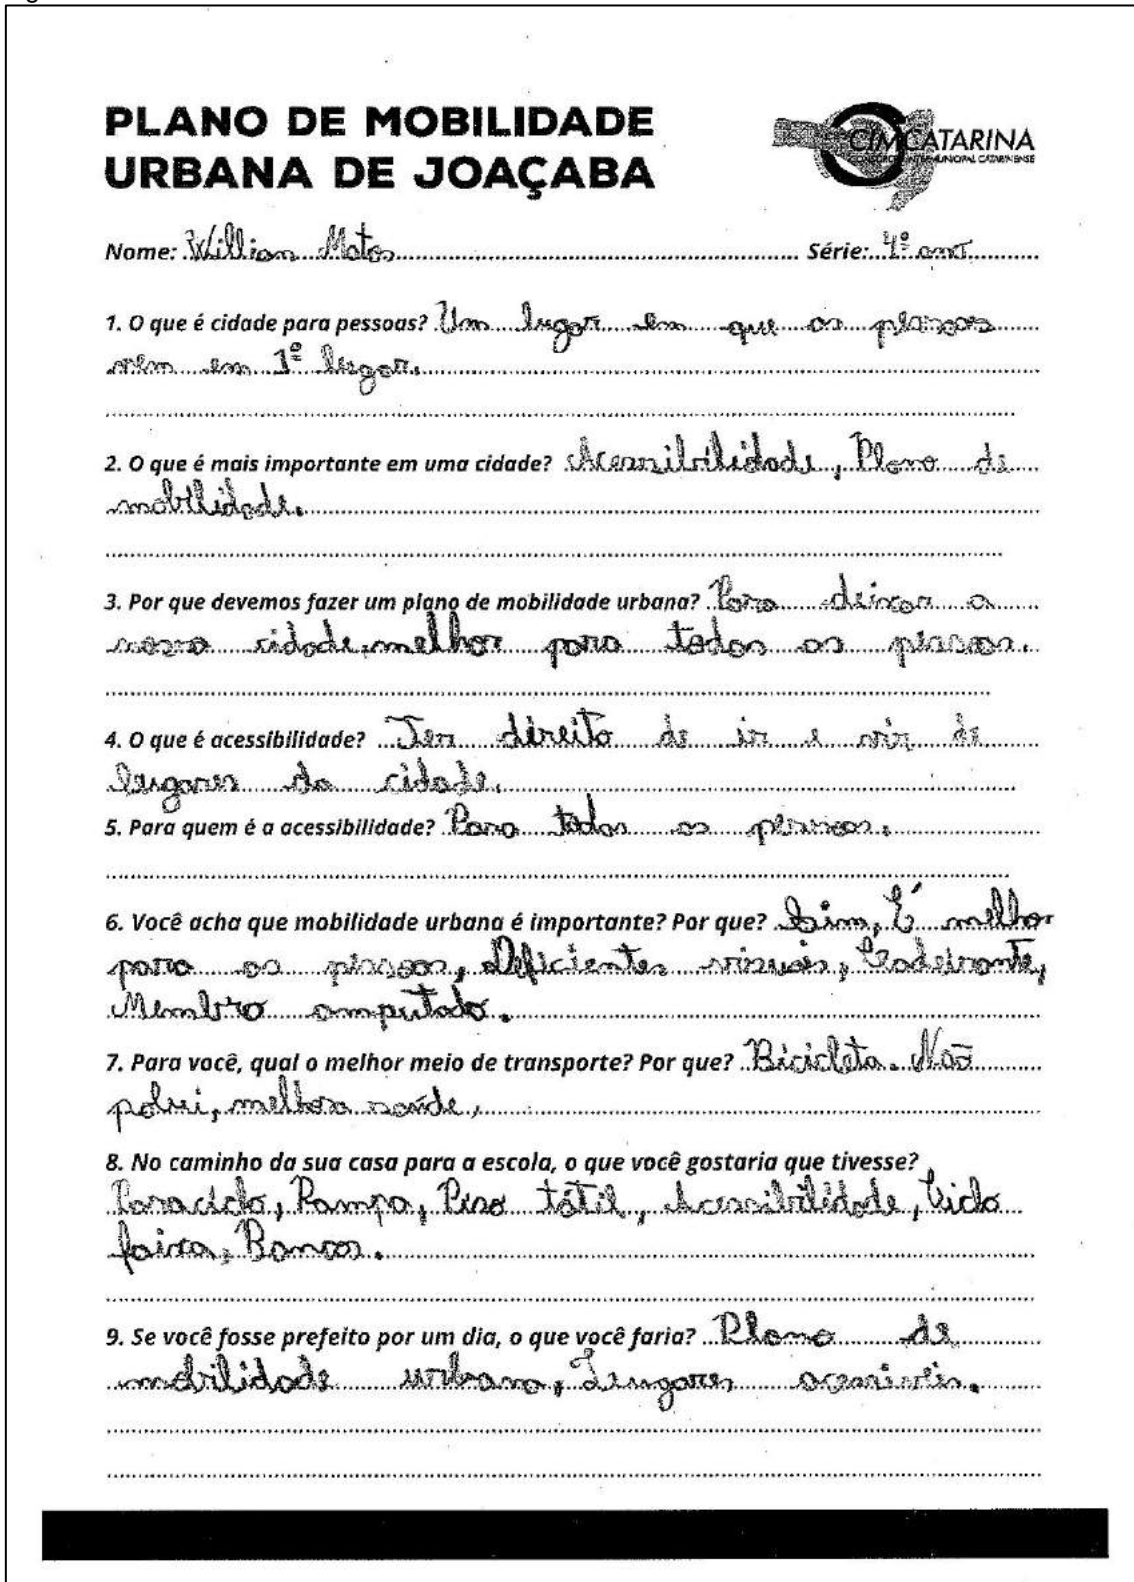 PLANO DE MOBILIDADE
URBANA DE JOAÇABA
CIMCATARINA
CONSÓRCIO INTERMUNICIPAL CATARINENSE
Nome: Willian Matos Série: 4º ano
1. O que é cidade para pessoas? Um lugar em que as pessoas
vem em 1º lugar.
2. O que é mais importante em uma cidade? Acessibilidade, Plano de
mobilidade.
3. Por que devemos fazer um plano de mobilidade urbana? Para deixar a
nossa cidade melhor para todas as pessoas.
4. O que é acessibilidade? Ter direito de ir e vir de
lugares da cidade.
5. Para quem é a acessibilidade? Para todas as pessoas.
6. Você acha que mobilidade urbana é importante? Por que? Sim, É melhor
para as pessoas, Deficientes visuais, Cadeirante,
Membro amputado.
7. Para você, qual o melhor meio de transporte? Por que? Bicicleta. Não
polui, melhora saúde,
8. No caminho da sua casa para a escola, o que você gostaria que tivesse?
Paraciclo, Rampa, Piso tátil, Acessibilidade, Ciclo
faixa, Bancos.
9. Se você fosse prefeito por um dia, o que você faria? Plano de
mobilidade urbana, Lugares acessiveis.